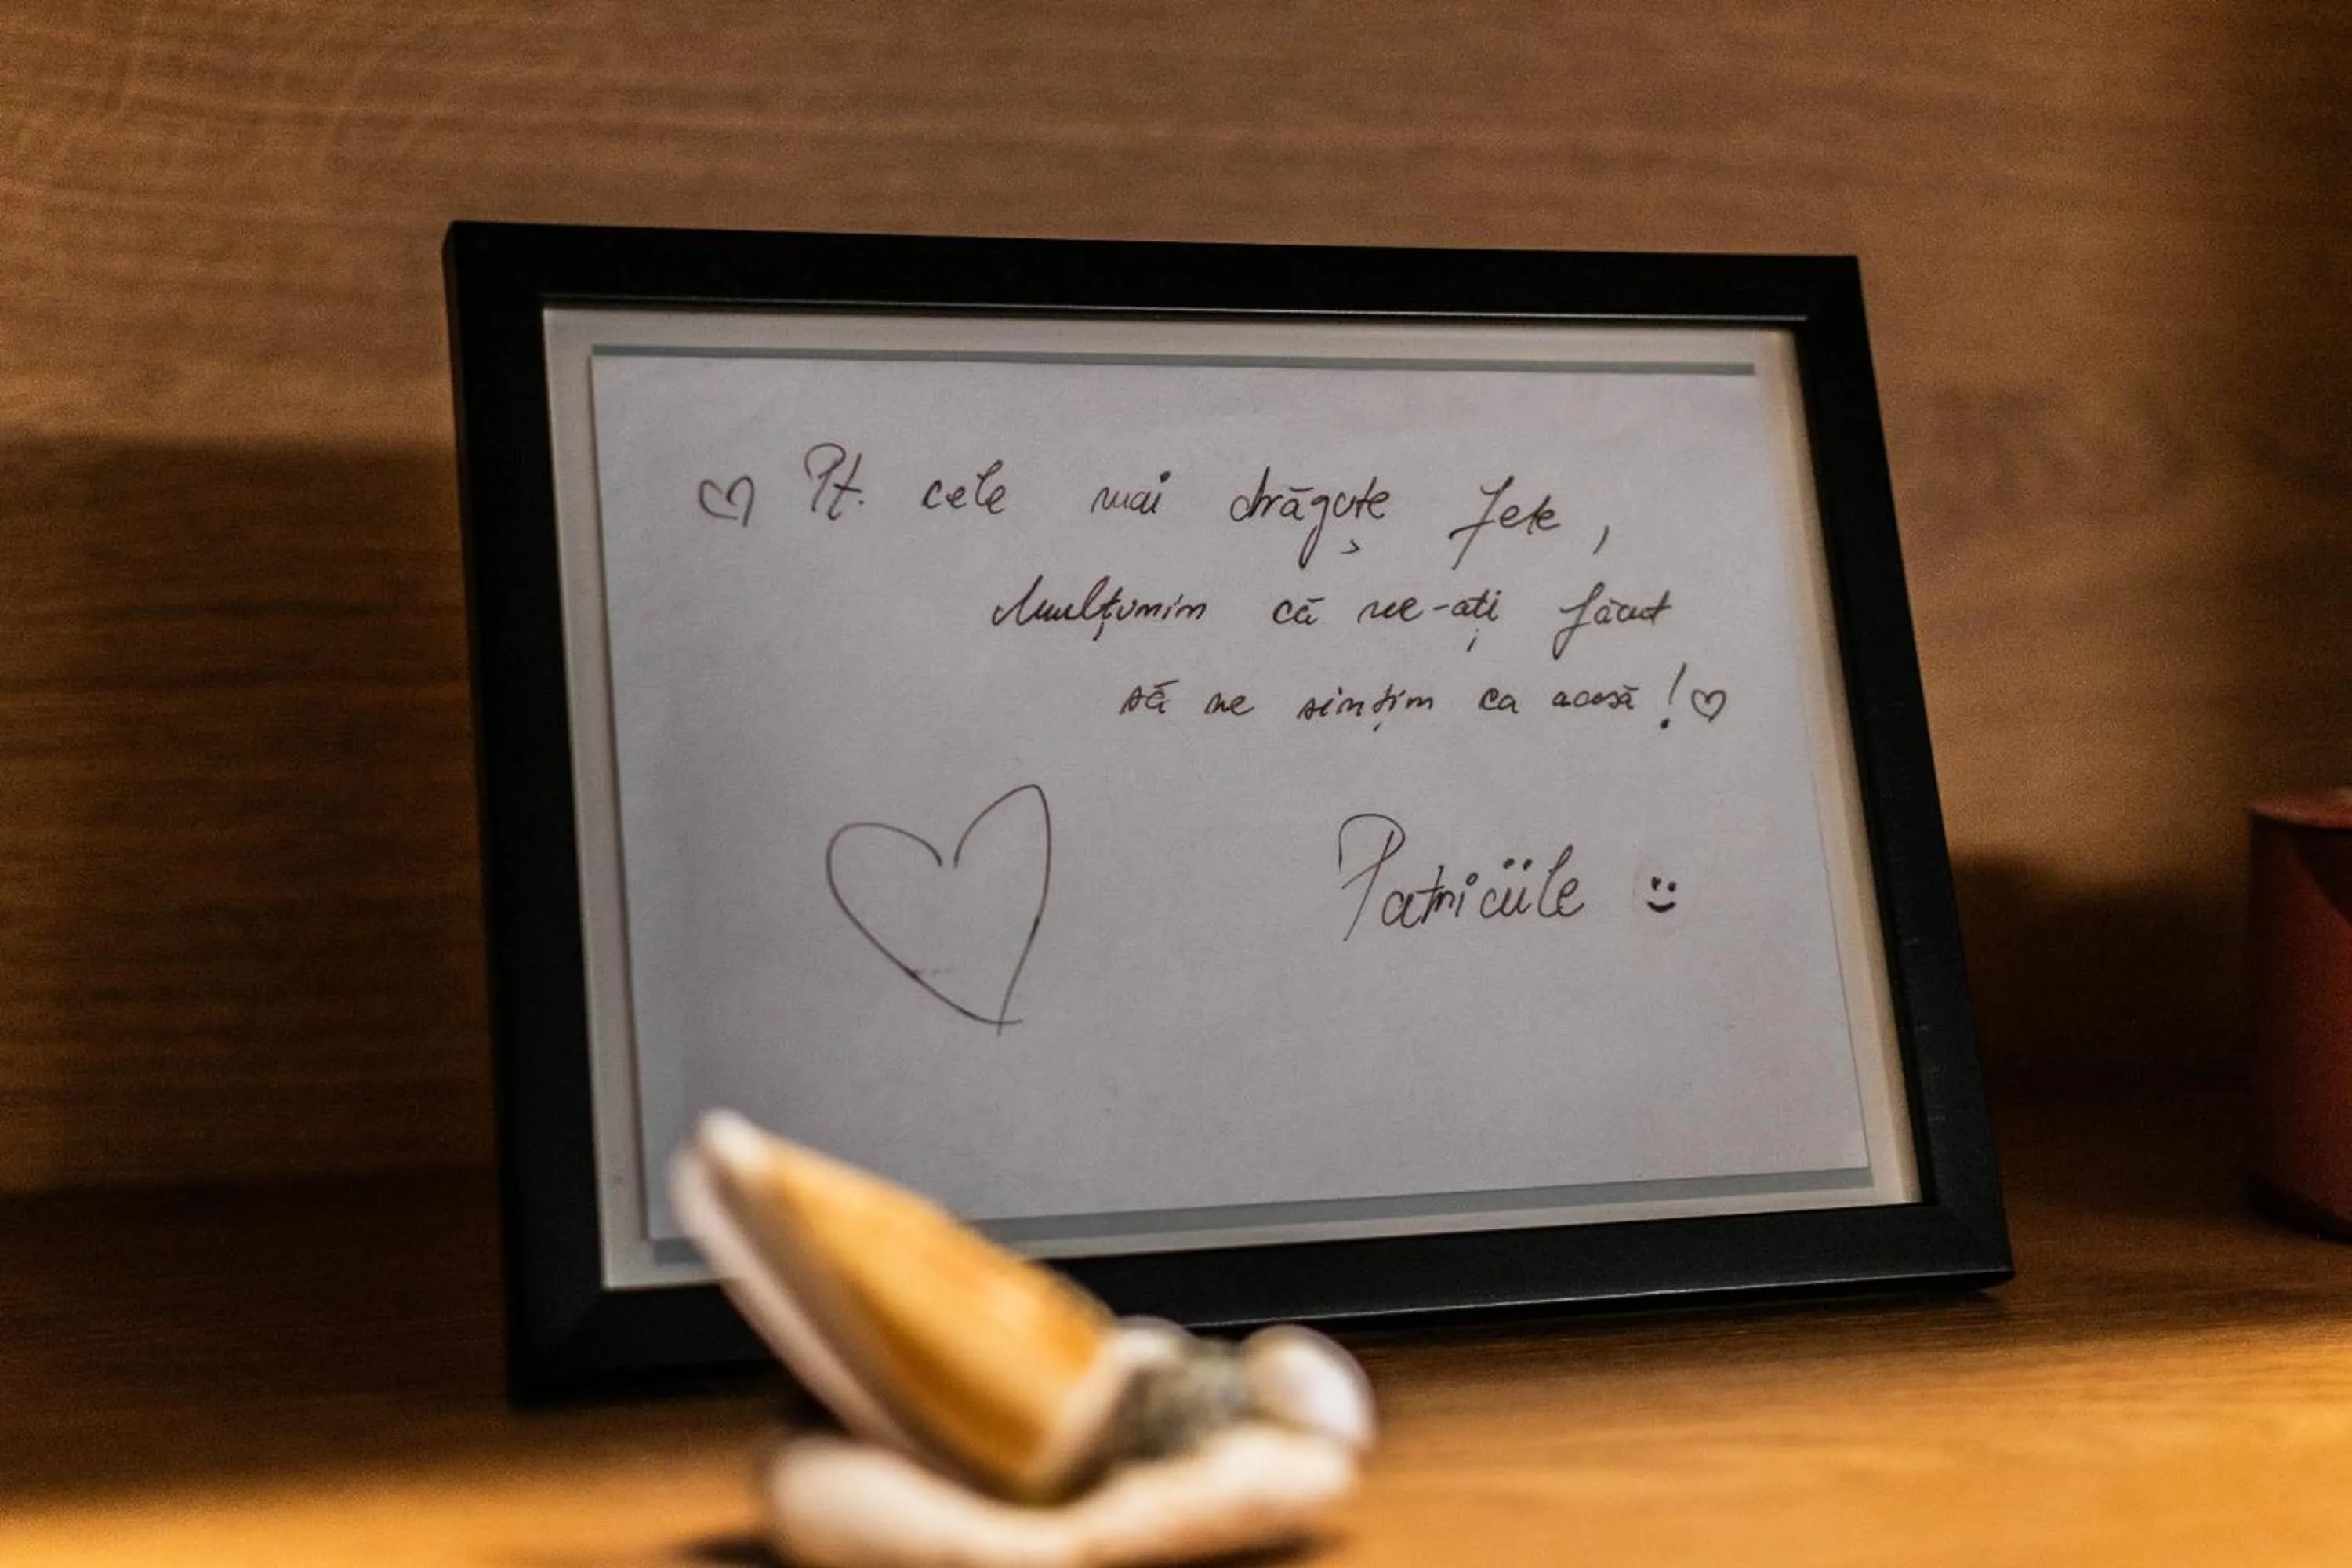 ♡ Pt. cele mai drăguțe fete,
Mulțumim că ne-ați făcut
să ne simțim ca acasă! ♡
Patriciile :)